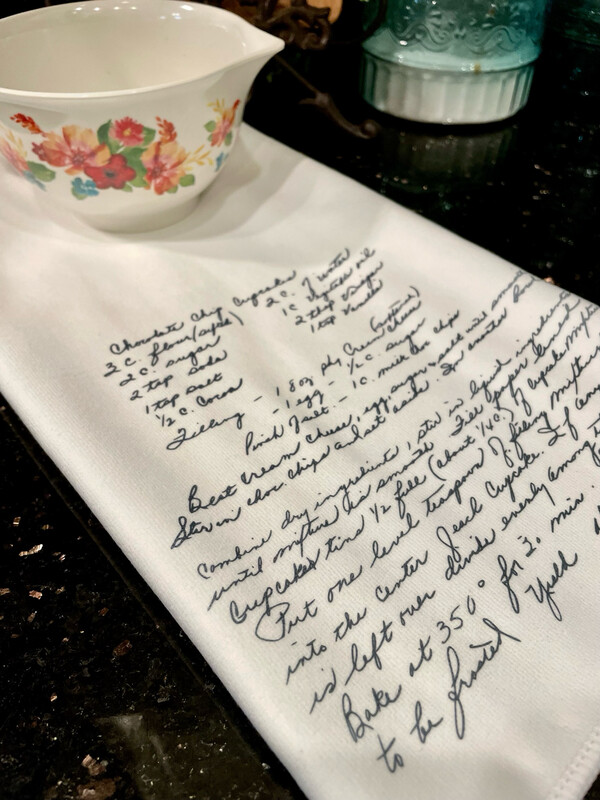 Chocolate Chip Cupcakes
3 c. flour (sifted) 2 c. water
2 c. sugar 1 c. vegetable oil
2 tsp soda 2 tbsp vinegar
1 tsp salt 1 tsp vanilla
1/2 c. cocoa
Filling - 1 8oz pkg cream cheese (softened)
- 1 egg - 1/2 c. sugar
Pinch salt - 1 c. milk choc chips
Beat cream cheese, egg, sugar & salt until smooth
Stir in choc chips and set aside. In another
Combine dry ingredients, stir in liquid ingredients
until mixture is smooth. Fill paper lined
Cupcakes tins 1/2 full (about 1/4 c.) of cupcake mixture
Put one level teaspoon of filling mixture
into the center of each cupcake. If any
is left over divide evenly among
Bake at 350° for 30 min.
to be frosted Yield